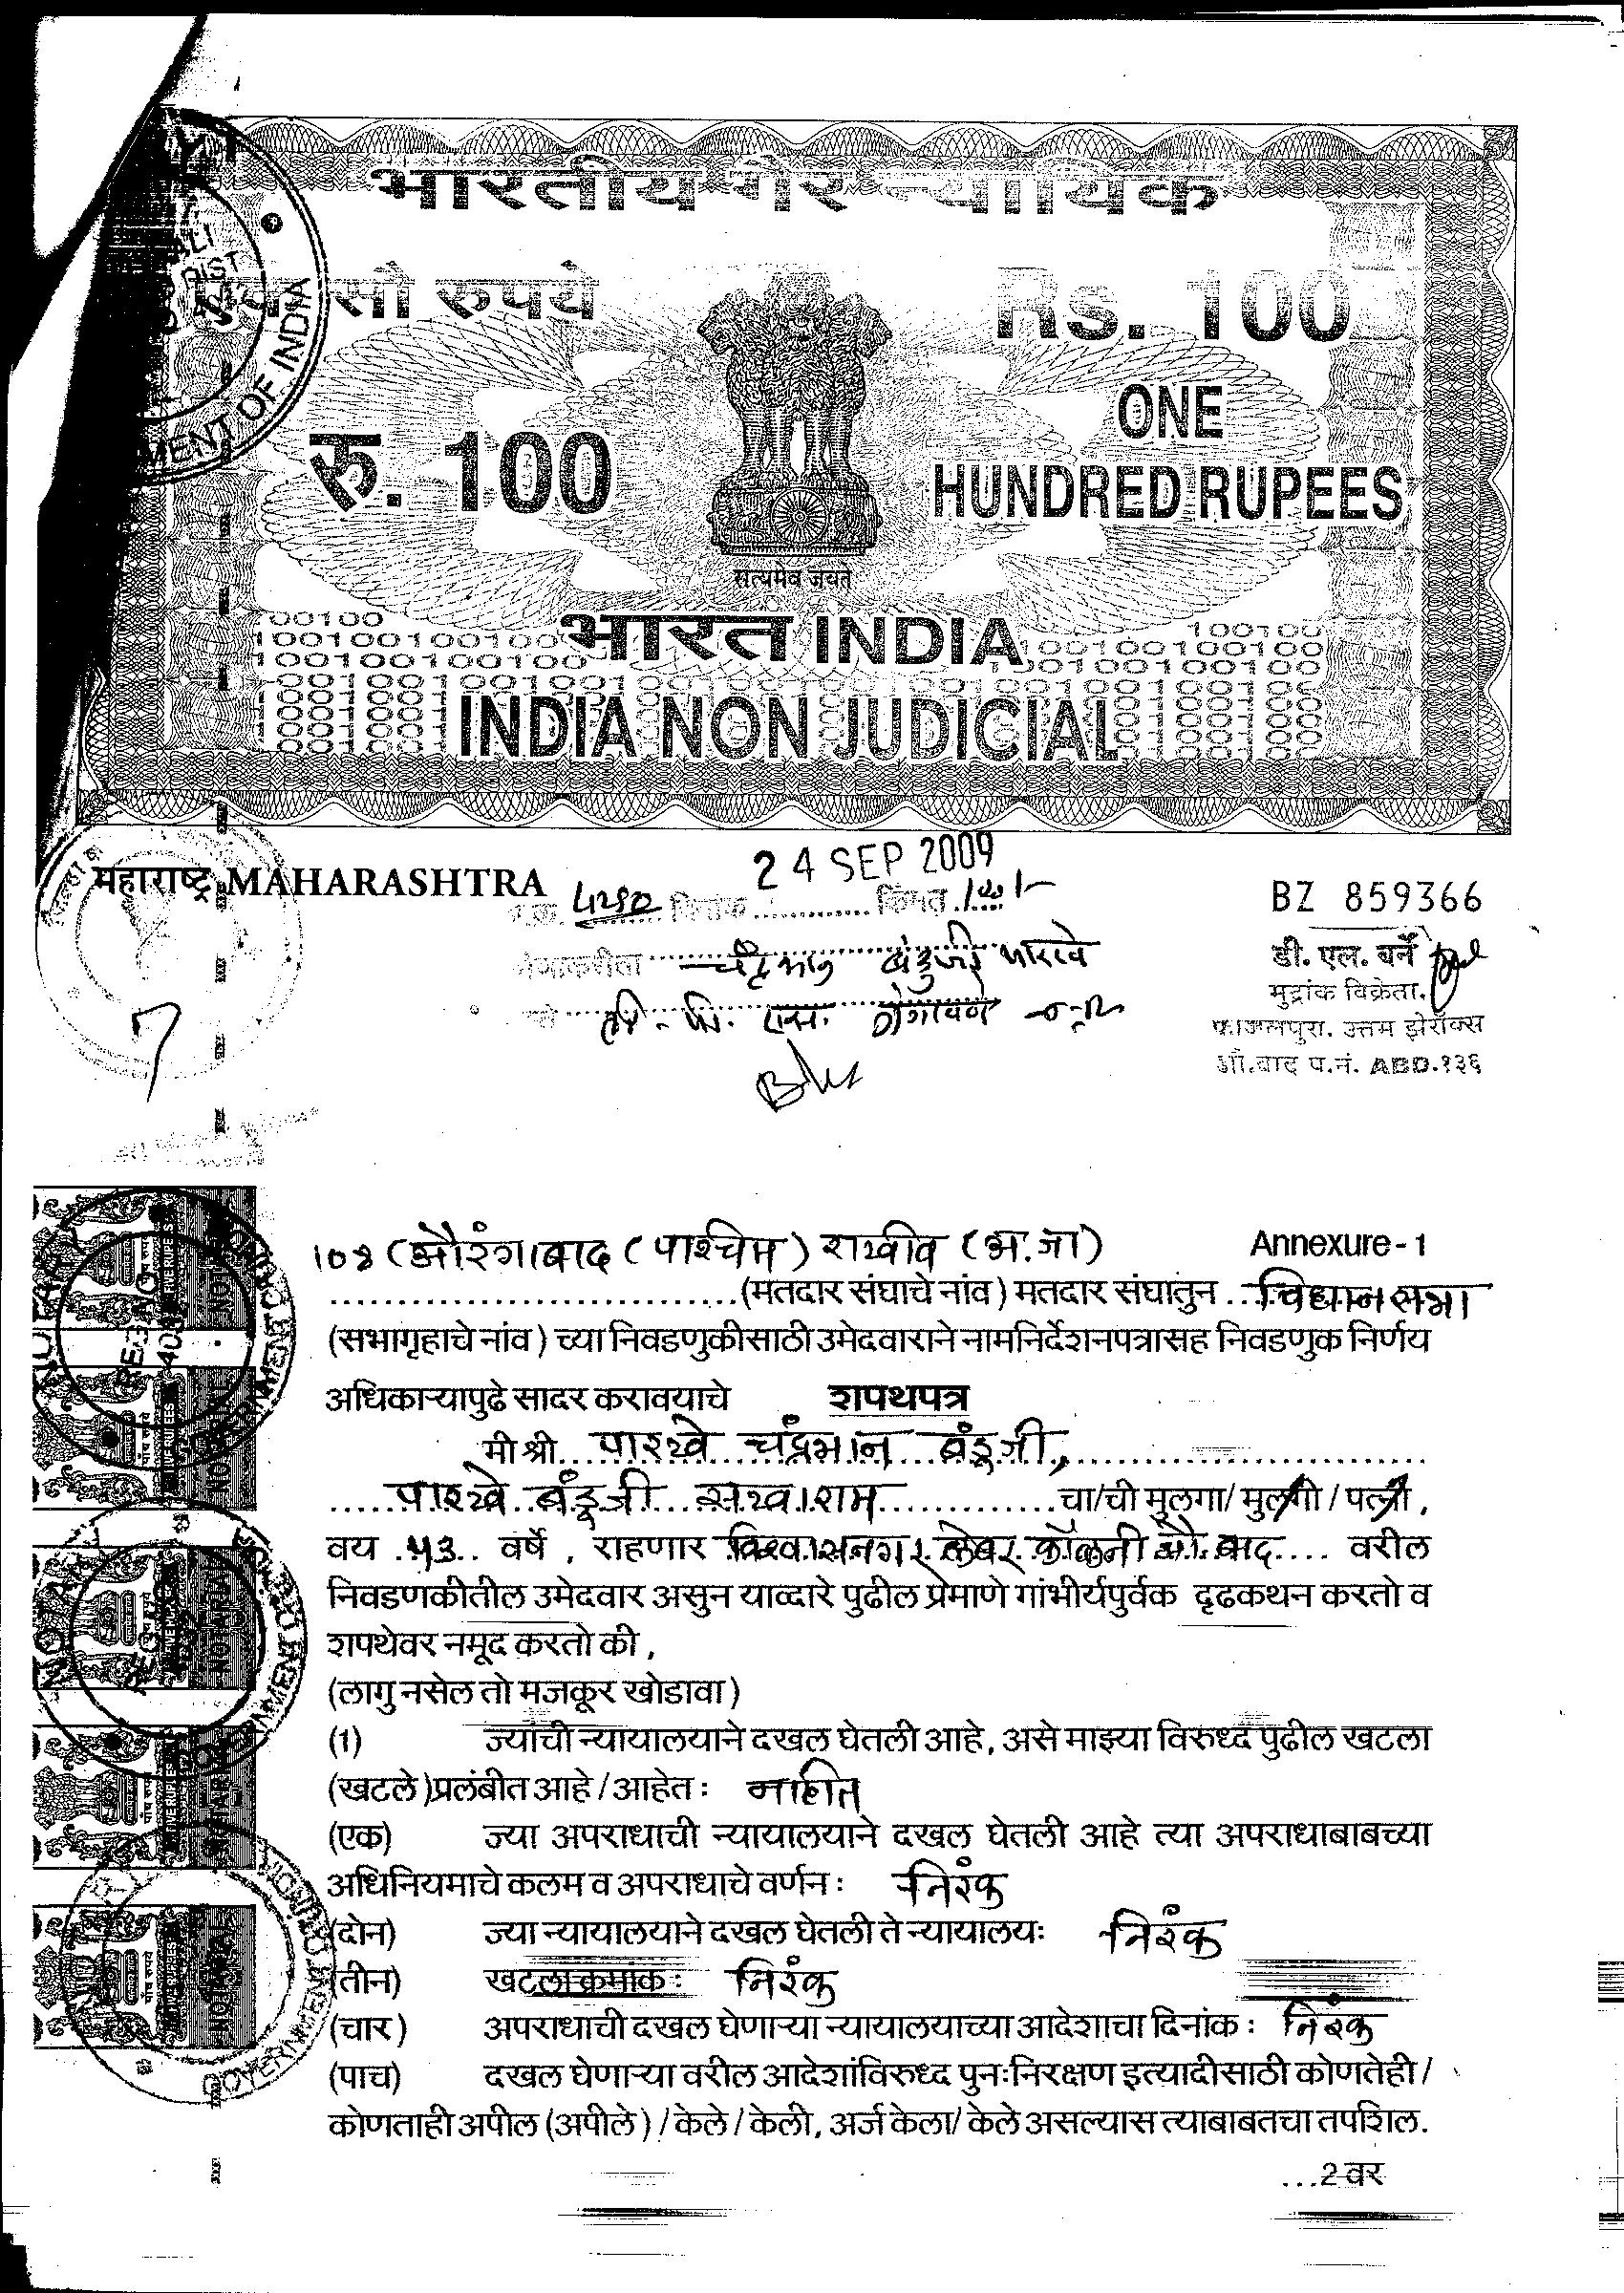 भारतीय गैर न्यायिक
एक सौ रुपये Rs. 100
रु. 100 ONE
HUNDRED RUPEES
सत्यमेव जयते
भारत INDIA
INDIA NON JUDICIAL
महाराष्ट्र MAHARASHTRA
24 SEP 2009
BZ 859366
डी. एल. बर्ने
मुद्रांक विक्रेता.
फाजलपुरा. उत्तम झेरॉक्स
औ.बाद प.नं. ABD.१३६
(औरंगाबाद (पश्चिम) राखीव (अ.जा) Annexure-1
(मतदार संघाचे नांव) मतदार संघातुन ...विधानसभा
(सभागृहाचे नांव) च्या निवडणुकीसाठी उमेदवाराने नामनिर्देशनपत्रासह निवडणुक निर्णय
अधिकाऱ्यापुढे सादर करावयाचे शपथपत्र
मी श्री... पारखे चंद्रभान बंडूजी,
पारखे बंडूजी सखाराम चा/ची मुलगा/मुलगी/पत्नी,
वय ..५३.. वर्षे, राहणार विश्वासनगर लेबर कॉलनी औ.बाद.... वरील
निवडणकीतील उमेदवार असुन याव्दारे पुढील प्रेमाणे गांभीर्यपुर्वक दृढकथन करतो व
शपथेवर नमूद करतो की,
(लागु नसेल तो मजकूर खोडावा)
(1) ज्यांची न्यायालयाने दखल घेतली आहे, असे माझ्या विरुध्द पुढील खटला
(खटले)प्रलंबीत आहे/आहेत: नाहीत
(एक) ज्या अपराधाची न्यायालयाने दखल घेतली आहे त्या अपराधाबाबच्या
अधिनियमाचे कलम व अपराधाचे वर्णन: निरंक
(दोन) ज्या न्यायालयाने दखल घेतली ते न्यायालय: निरंक
(तीन) खटला क्रमांक: निरंक
(चार) अपराधाची दखल घेणाऱ्या न्यायालयाच्या आदेशाचा दिनांक: निरंक
(पाच) दखल घेणाऱ्या वरील आदेशांविरुध्द पुन:निरक्षण इत्यादीसाठी कोणतेही/
कोणताही अपील (अपीले)/केले/केली, अर्ज केला/केले असल्यास त्याबाबतचा तपशिल.
...2 वर